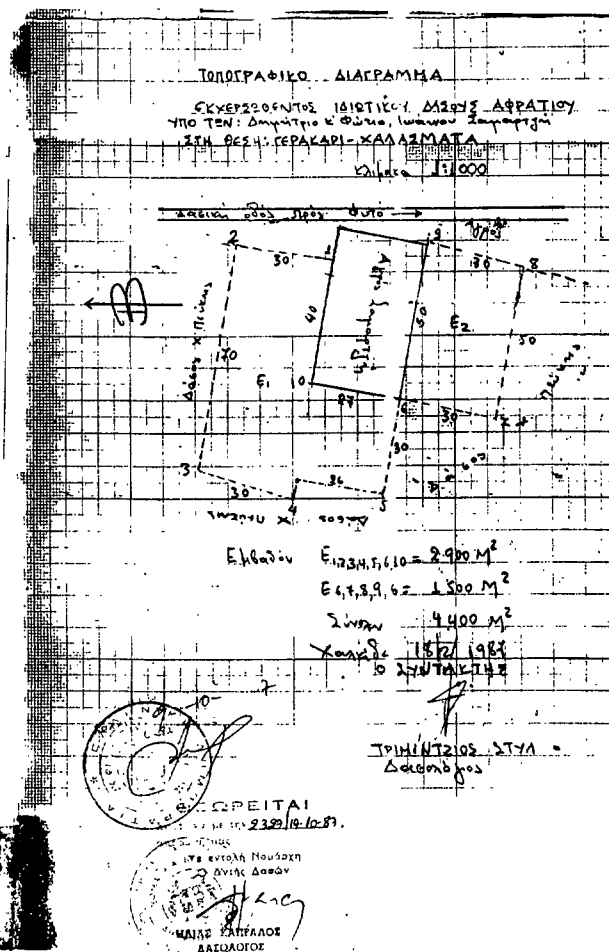 ΤΟΠΟΓΡΑΦΙΚΟ ΔΙΑΓΡΑΜΜΑ
ΕΚΧΕΡΣΩΘΕΝΤΟΣ ΙΔΙΩΤΙΚΟΥ ΔΑΣΟΥΣ ΑΦΡΑΤΙΟΥ
ΥΠΟ ΤΩΝ: Δημήτριο κ Φώτιο, Ιωάννου
ΣΤΗ ΘΕΣΗ: ΓΕΡΑΚΑΡΙ-ΧΑΛΑΣΜΑΤΑ
Κλίμακα 1:1000
Δασική οδός πρός Φυτό
2
30
1
9
30
8
Αγρός
40
50
E2
50
Δάσος Χ Πεύκης
70
E1
10
27
6
30
7
Πεύκης
30
3
30
4
26
5
Δάσος
Δάσος Χ Πεύκης
Εμβαδόν E1,2,3,4,5,6,10 = 2.900 M²
E6,7,8,9,6 = 1.500 M²
Σύνολον 4.400 M²
Χαλκίδα 18/2/1987
Ο ΣΥΝΤΑΚΤΗΣ
ΤΡΙΜΙΝΤΖΙΟΣ ΣΤΥΛ
Δασολόγος
-10-
7
ΘΕΩΡΕΙΤΑΙ
με την 2399/19-10-87.
με εντολή Νομάρχη
Ο Δντής Δασών
ΗΛΙΑΣ ΚΑΠΡΑΛΟΣ
ΔΑΣΟΛΟΓΟΣ